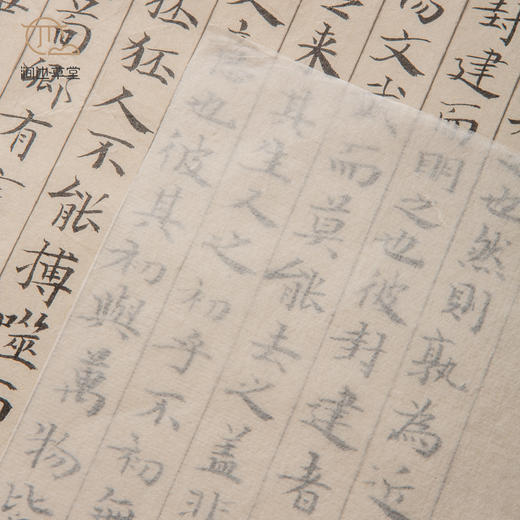 也然則孰為近
封建而明之也彼封建者
湯文武而莫能去之蓋非
之來其生人之初乎不初無
也彼其初與萬物皆
狉人不能搏噬而
卿有言
草堂